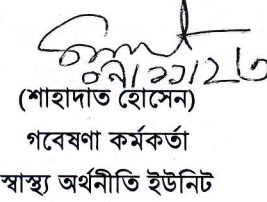 ০৭/১১/২৩
(শাহাদাত হোসেন)
গবেষণা কর্মকর্তা
স্বাস্থ্য অর্থনীতি ইউনিট